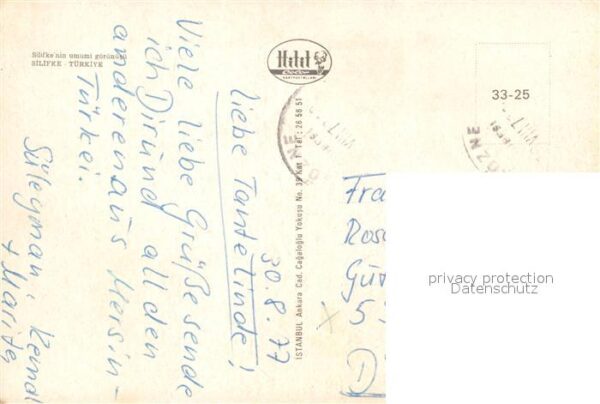 Silifke'nin umumi görünüşü
SİLİFKE - TÜRKİYE
30.8.77
liebe Tante Linde!
Viele liebe Grüße sende
ich Dir und all den
anderen aus Mersin -
Türkei.
Süleyman, Kemal
+ Marita
Hitit
İSTANBUL Ankara Cad. Cağaloğlu Yokuşu No. 39 Kat 1 Tel: 26 56 51
33-25
GÖZNE
GÖZNE
Fra
Rosa
Gü
5
D
privacy protection
Datenschutz